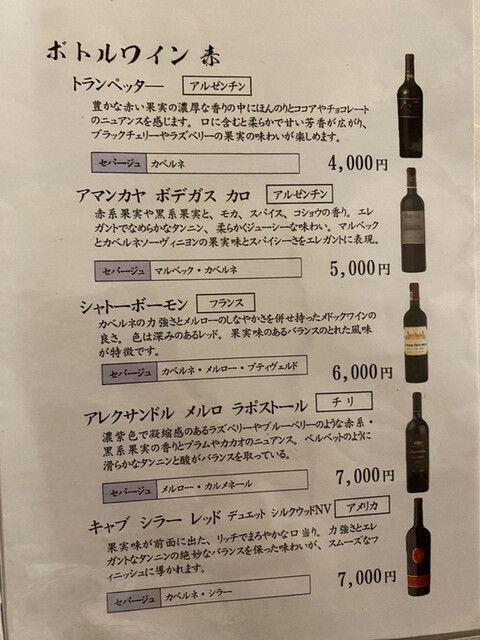 ボトルワイン 赤
トランペッター アルゼンチン
豊かな赤い果実の濃厚な香りの中にほんのりとココアやチョコレート
のニュアンスを感じます。 口に含むと柔らかで甘い芳香が広がり、
ブラックチェリーやラズベリーの果実の味わいが楽しめます。
セパージュ カベルネ 4,000円
アマンカヤ ボデガス カロ アルゼンチン
赤系果実や黒系果実と、モカ、スパイス、コショウの香り。 エレ
ガントでなめらかなタンニン、 柔らかくジューシーな味わい。マルベック
とカベルネソーヴィニヨンの果実味とスパイシーさをエレガントに表現。
セパージュ マルベック・カベルネ 5,000円
シャトーボーモン フランス
カベルネの力強さとメルローのしなやかさを併せ持ったメドックワインの
良さ。 色は深みのあるレッド。 果実味のあるバランスのとれた風味
が特徴です。
セパージュ カベルネ・メルロー・プティヴェルド 6,000円
アレクサンドル メルロ ラポストール チリ
濃紫色で凝縮感のあるラズベリーやブルーベリーのような赤系・
黒系果実の香りとプラムやカカオのニュアンス。 ベルベットのように
滑らかなタンニンと酸がバランスを取っている。
セパージュ メルロー・カルメネール 7,000円
キャブ シラー レッド デュエット シルクウッドNV アメリカ
果実味が前面に出た、リッチでまろやかな口当り。 力強さとエレ
ガントなタンニンの絶妙なバランスを保った味わいが、スムーズなフ
ィニッシュに導かれます。
セパージュ カベルネ・シラー 7,000円